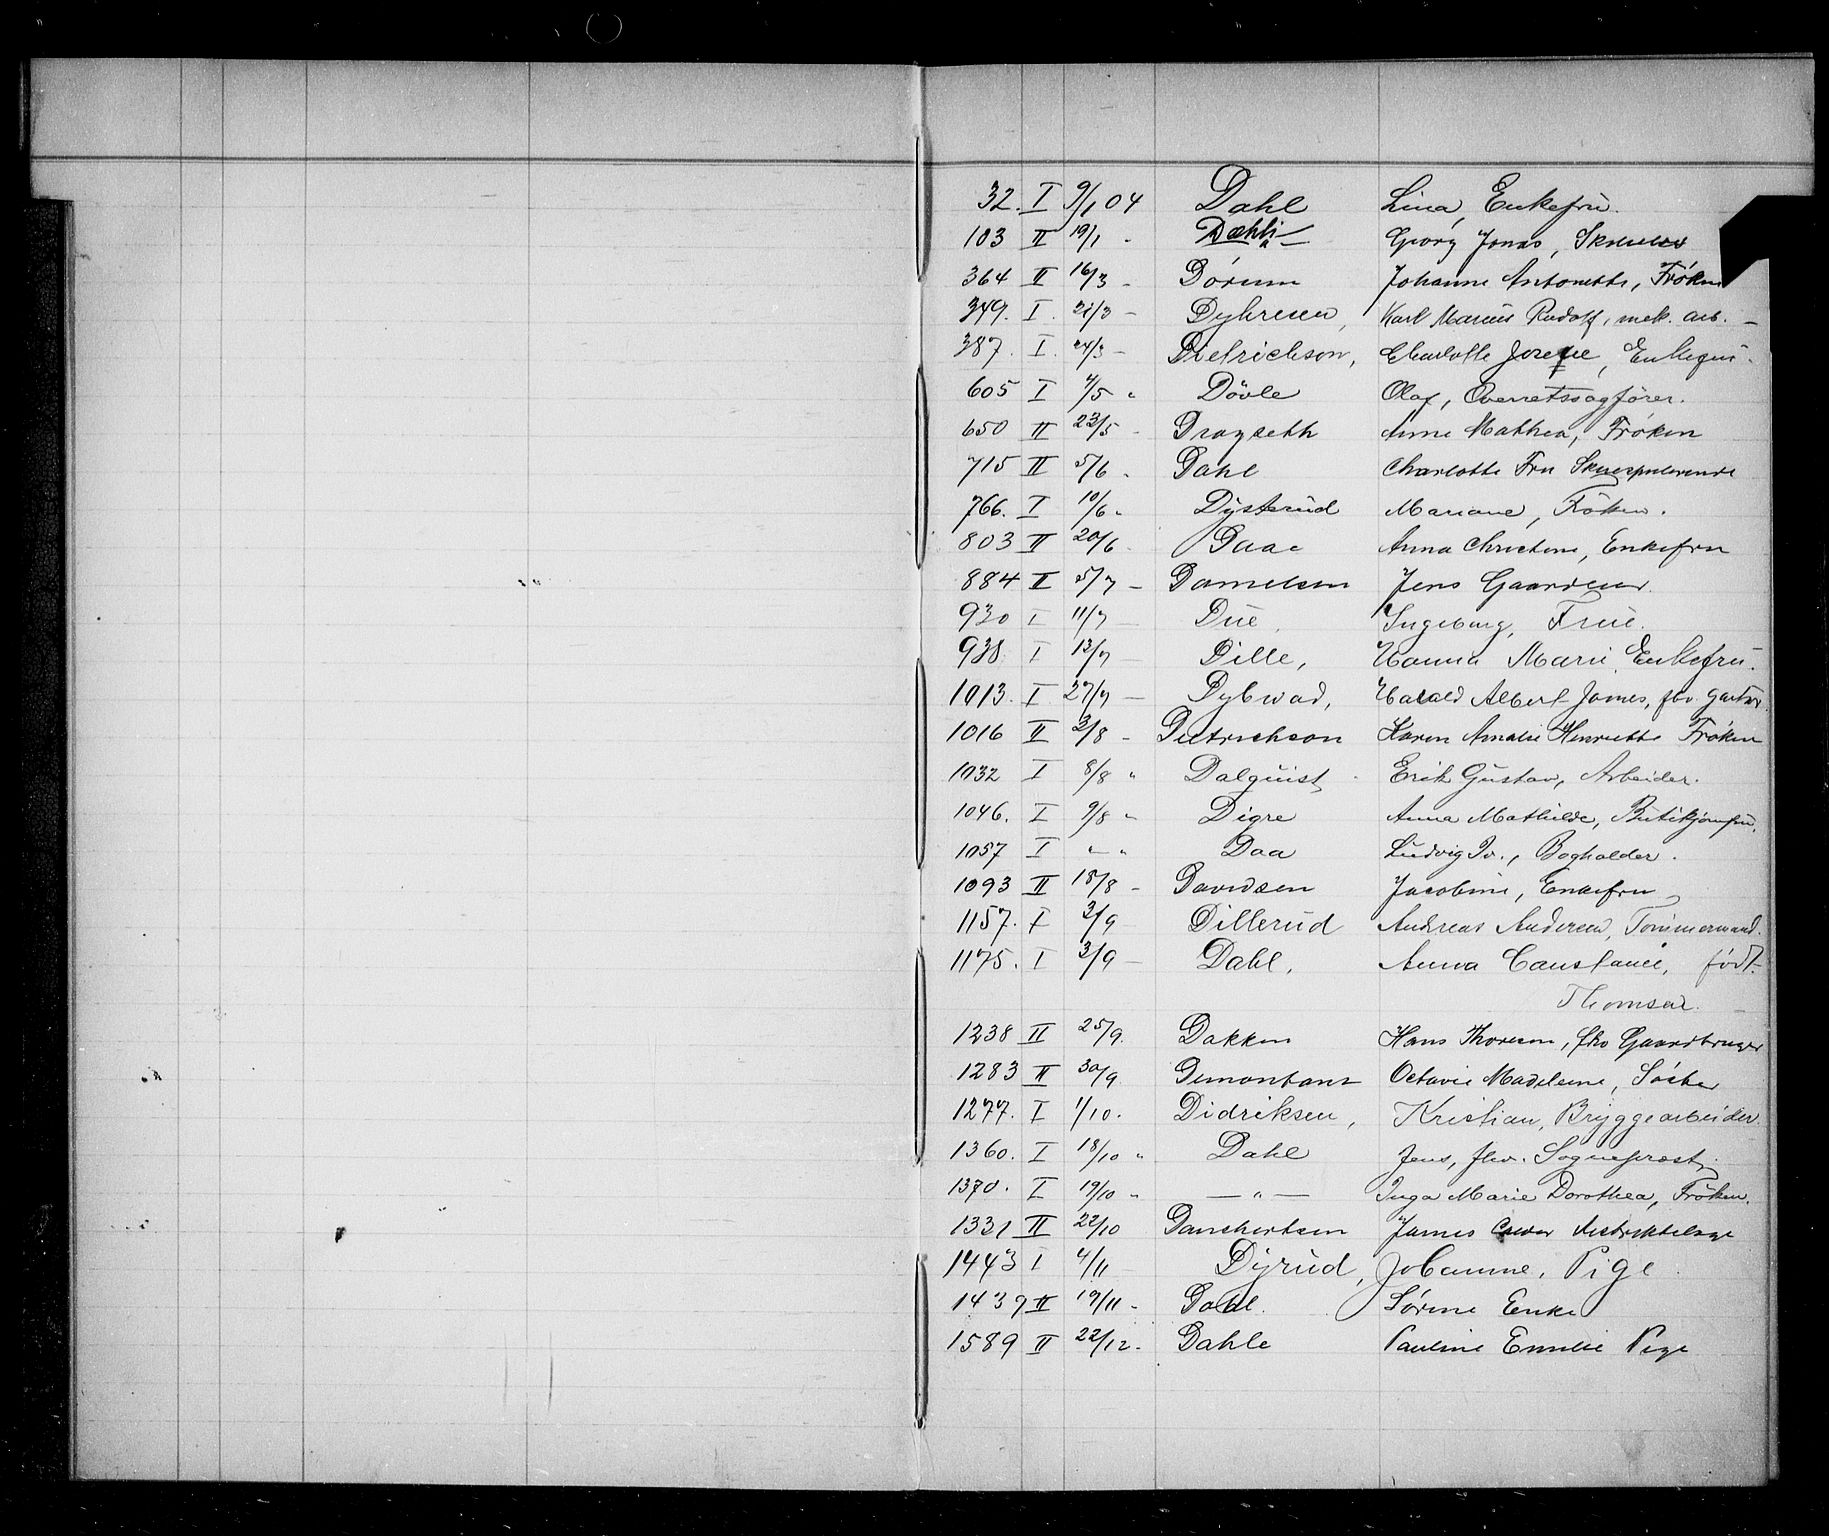 32. I 9/1 04 Dahl Lina, Enkefru.
103 II 19/1 - Dæhli Georg Jonas,
364 II 16/3 - Dórum Johanne Antonette, Frøken
349. I. 21/3 - Dyhresen, Karl Marius Rudolf, mek. arb. -
387. I. 24/3 - Dietrichson, Charlotte Josefie, Enkefru.
605 I 4/5 " Døvle Olaf, Overretssagfører.
650 II 23/5 - Dragseth Anne Mathea, Frøken
715 II 5/6 - Dahl Charlotte Fru Skuespillerinde
766. I 10/6 " Dysterud Mariane, Frøken.
803 II 20/6 - Daae Anna Christine, Enkefru
884 II 5/7 - Danielsen Jens Gaardeier.
930 I 11/7 - Due, Ingeborg, Frue.
938 I 12/7 - Dille, Hanna Marie, Enkefru.
1013. I 27/7 - Dybwad, Harald Albert James, fhv. Gartner.
1016 II 3/8 - Dietrichson Karen Amalie Henriette Frøken
1032 I 8/8 " Dalquist Erik Gustav, Arbeider.
1046. I 9/8 " Digre Anna Mathilde, Butikjomfru.
1057 I " " Daa Ludvig Iv., Bogholder.
1093 II 18/8 - Davidsen Jacobine, Enkefru
1157. I 2/9 Dillerud Andreas Andersen, Tømmermand.
1175. I 3/9 - Dahl, Anna Constance, født
Thomsen. -
1238 II 25/9. Dokken Hans Thoresen, fhv Gaardbruger
1283 II 30/9 Demontant Octavie Madeleine, Søster
1277. I 1/10. Didriksen, Kristian, Bryggearbeider.
1360. I 18/10 " Dahl Jens, fhv. Sogneprest
1370. I 19/10 " — " — Inga Marie Dorothea, Frøken.
1331 II 22/10 Danchertsen James Distriktslæge
1443 I 4/11 - Dyrud, Johanne, Pige.
1439 II 19/11 - Dahl. Sørine Enke
1589 II 22/12. Dahle Pauline Emilie Pige